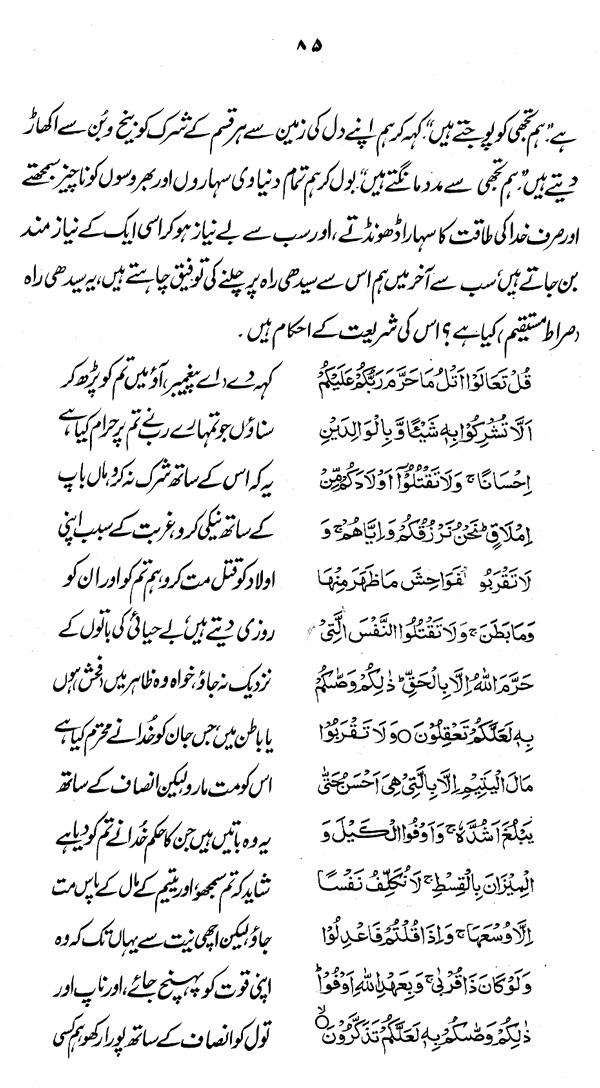 ۸۵
ہے۔ "ہم تجھی کو پوجتے ہیں" کہہ کر ہم اپنے دل کی زمین سے ہر قسم کے شرک کو بیخ و بُن سے اکھاڑ
دیتے ہیں "ہم تجھی سے مدد مانگتے ہیں" بول کر ہم تمام دنیاوی سہاروں اور بھروسوں کو ناچیز سمجھتے
اور صرف خدا کی طاقت کا سہارا ڈھونڈتے، اور سب سے بے نیاز ہو کر اسی ایک کے نیاز مند
بن جاتے ہیں، سب سے آخر میں ہم اس سے سیدھی راہ پر چلنے کی توفیق چاہتے ہیں، یہ سیدھی راہ
(صراط مستقیم) کیا ہے؟ اس کی شریعت کے احکام ہیں۔
قُلْ تَعَالَوْا اَتْلُ مَا حَرَّمَ رَبُّكُمْ عَلَيْكُمْ
اَلَّا تُشْرِكُوْا بِهٖ شَيْئًا وَّ بِالْوَالِدَيْنِ
اِحْسَانًا ۚ وَلَا تَقْتُلُوْٓا اَوْلَادَكُمْ مِّنْ
اِمْلَاقٍ ؕ نَحْنُ نَرْزُقُكُمْ وَاِيَّاهُمْ ۚ وَ
لَا تَقْرَبُو لْفَوَاحِشَ مَا ظَهَرَ مِنْهَا
وَمَا بَطَنَ ۚ وَلَا تَقْتُلُوا النَّفْسَ الَّتِيْ
حَرَّمَ اللهُ اِلَّا بِالْحَقِّ ؕ ذٰلِكُمْ وَصّٰكُمْ
بِهٖ لَعَلَّكُمْ تَعْقِلُوْنَ ○ وَلَا تَقْرَبُوْا
مَالَ الْيَتِيْمِ اِلَّا بِالَّتِيْ هِيَ اَحْسَنُ حَتّٰى
يَبْلُغَ اَشُدَّهٗ ۚ وَاَوْفُوا الْكَيْلَ وَ
الْمِيْزَانَ بِالْقِسْطِ ۚ لَا نُكَلِّفُ نَفْسًا
اِلَّا وُسْعَهَا ۚ وَاِذَا قُلْتُمْ فَاعْدِلُوْا
وَلَوْ كَانَ ذَا قُرْبٰى ۚ وَبِعَهْدِ اللهِ اَوْفُوْا ؕ
ذٰلِكُمْ وَصّٰكُمْ بِهٖ لَعَلَّكُمْ تَذَكَّرُوْنَ ○
کہہ دے (اے پیغمبر) آؤ میں تم کو پڑھ کر
سناؤں جو تمہارے رب نے تم پر حرام کیا ہے
یہ کہ اس کے ساتھ شرک نہ کرو، ماں باپ
کے ساتھ نیکی کرو، غربت کے سبب اپنی
اولاد کو قتل مت کرو، ہم تم کو اور ان کو
روزی دیتے ہیں، بے حیائی کی باتوں کے
نزدیک نہ جاؤ، خواہ وہ ظاہر میں (فحش) ہوں
یا باطن میں، جس جان کو خُدا نے محترم کیا ہے
اس کو مت مارو لیکن انصاف کے ساتھ
یہ وہ باتیں ہیں جن کا حکم خُدا نے تم کو دیا ہے
شاید کہ تم سمجھو، اور یتیم کے مال کے پاس مت
جاؤ لیکن اچھی نیت سے یہاں تک کہ وہ
اپنی قوت کو پہنچ جائے، اور ناپ اور
تول کو انصاف کے ساتھ پورا رکھو، ہم کسی